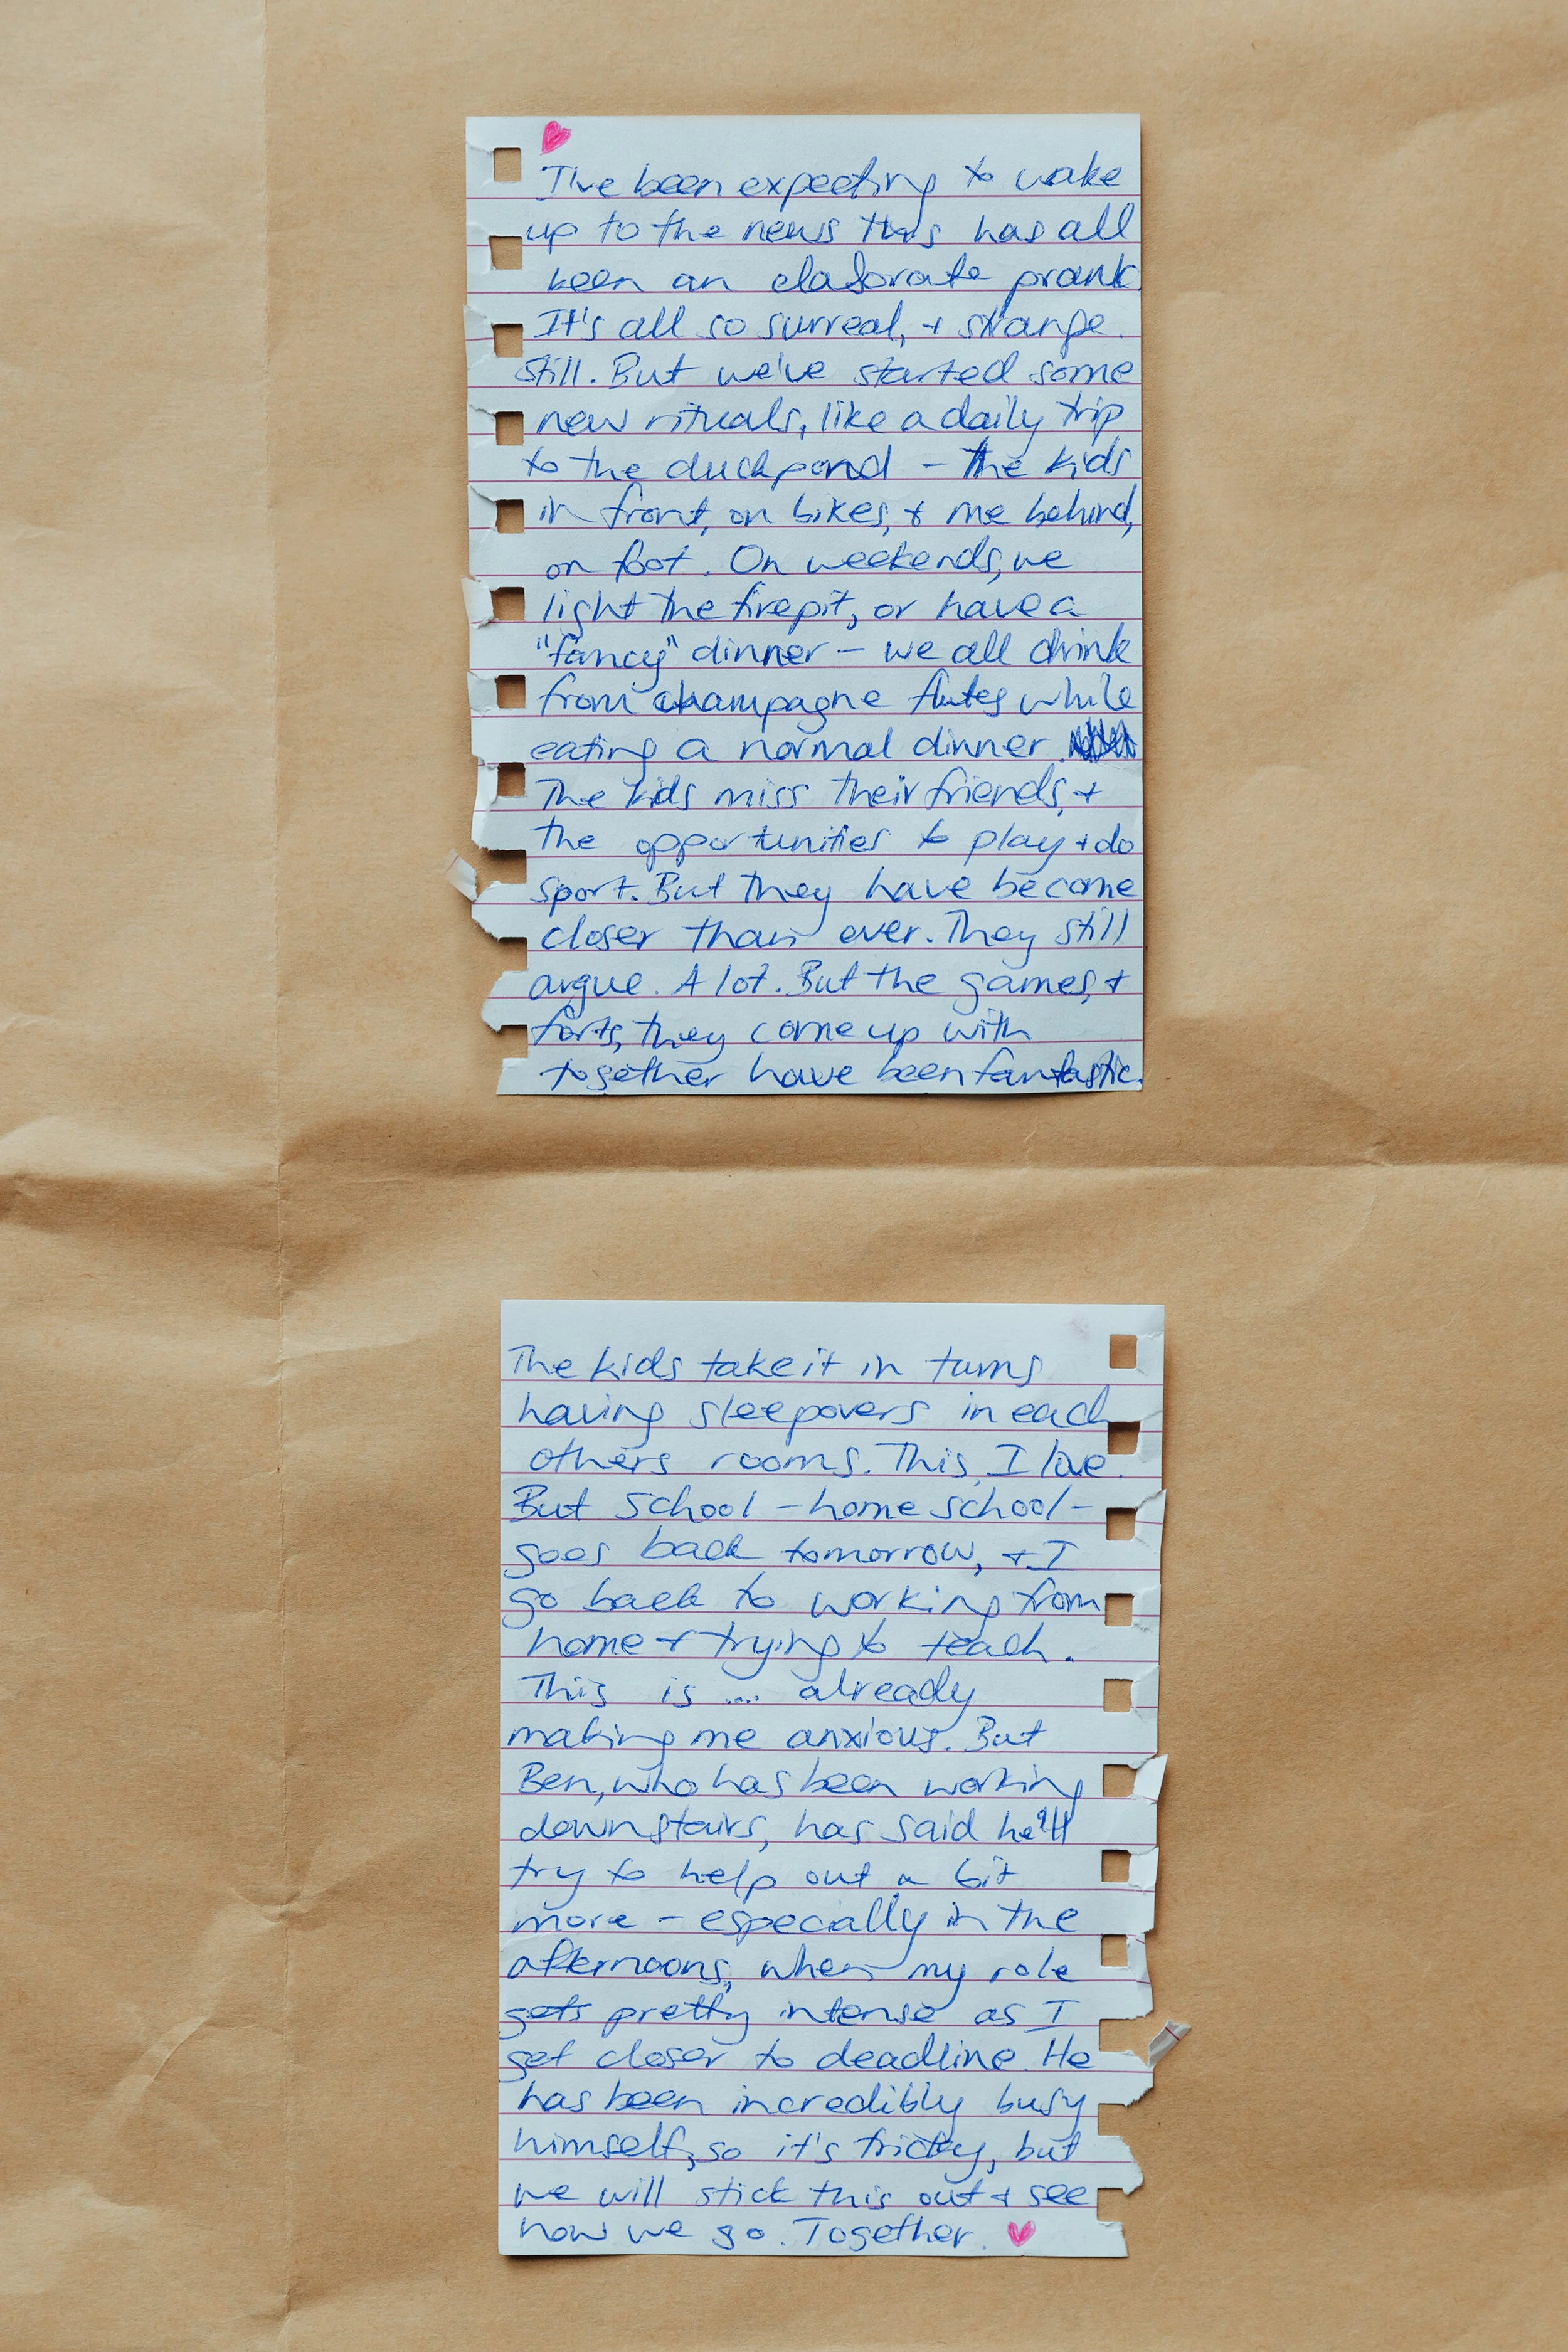 I've been expecting to wake
up to the news this has all
been an elaborate prank.
It's all so surreal, + strange.
Still. But we've started some
new rituals, like a daily trip
to the duckpond - the kids
in front, on bikes, + me behind,
on foot. On weekends, we
light the firepit, or have a
"fancy" dinner - we all drink
from champagne flutes while
eating a normal dinner.
The kids miss their friends, +
the opportunities to play + do
sport. But they have become
closer than ever. They still
argue. A lot. But the games, +
forts, they come up with
together have been fantastic.
The kids take it in turns
having sleepovers in each
others rooms. This, I love.
But school - home school -
goes back tomorrow, + I
go back to working from
home + trying to teach.
This is .... already
making me anxious. But
Ben, who has been working
downstairs, has said he'll
try to help out a bit
more - especially in the
afternoons, when my role
gets pretty intense as I
get closer to deadline. He
has been incredibly busy
himself, so it's tricky, but
we will stick this out + see
how we go. Together.